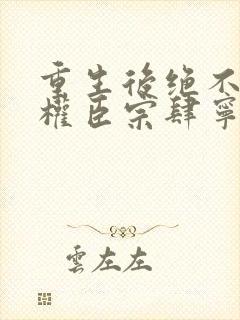 重生後绝不
權臣宗肆寧
雲左左